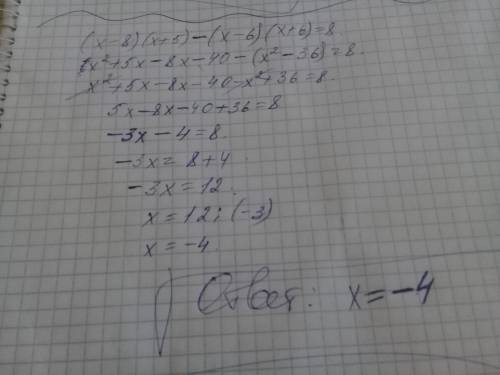 (x-8)(x+5)-(x-6)(x+6)=8
x²+5x-8x-40-(x²-36)=8.
x²+5x-8x-40-x²+36=8.
5x-8x-40+36=8
-3x-4=8.
-3x=8+4.
-3x=12.
x=12:(-3)
x=-4.
Ответ: x=-4